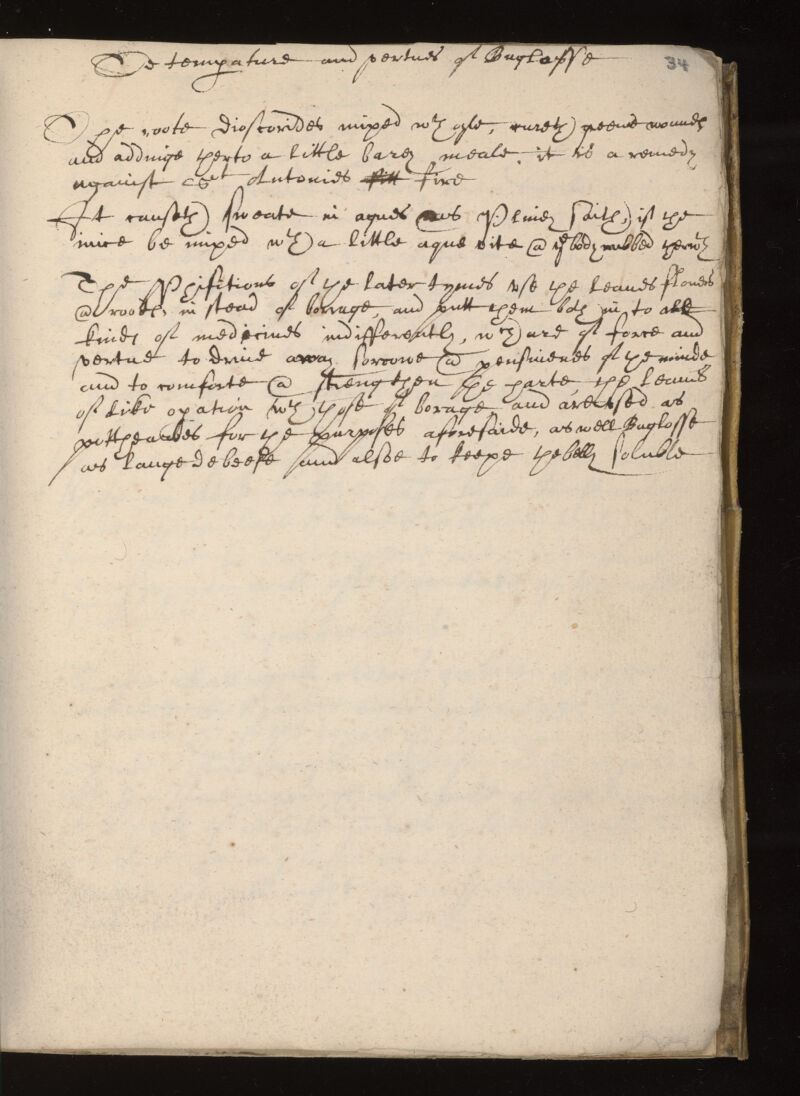 De temperature and vertues of Buglosse 34
The roote dioscorides mixed wth oyle, cureth greene wounds
and addinge therto a little barly meale, it is a remedy
against St Antonies fitt fire
It causeth sweate in agues as Pliney saith, if the
iuice be mixed wth a little aque vite & ye body rubbed therwth
The Phisitions of the later tymes use the leaves flowres
& rootes in stead of borage, and putt them both in to all
kindes of medecines indifferently, wch are of force and
vertue to drive away sorrowe & pensivenes of the minde
and to comforte & strengthen the harte, the leaves
of like opation wth those of borage and are used as
pottherbes for the purposes aforesaide, as well Buglosse
as Langedebeefe and alsoe to keepe the belly soluble